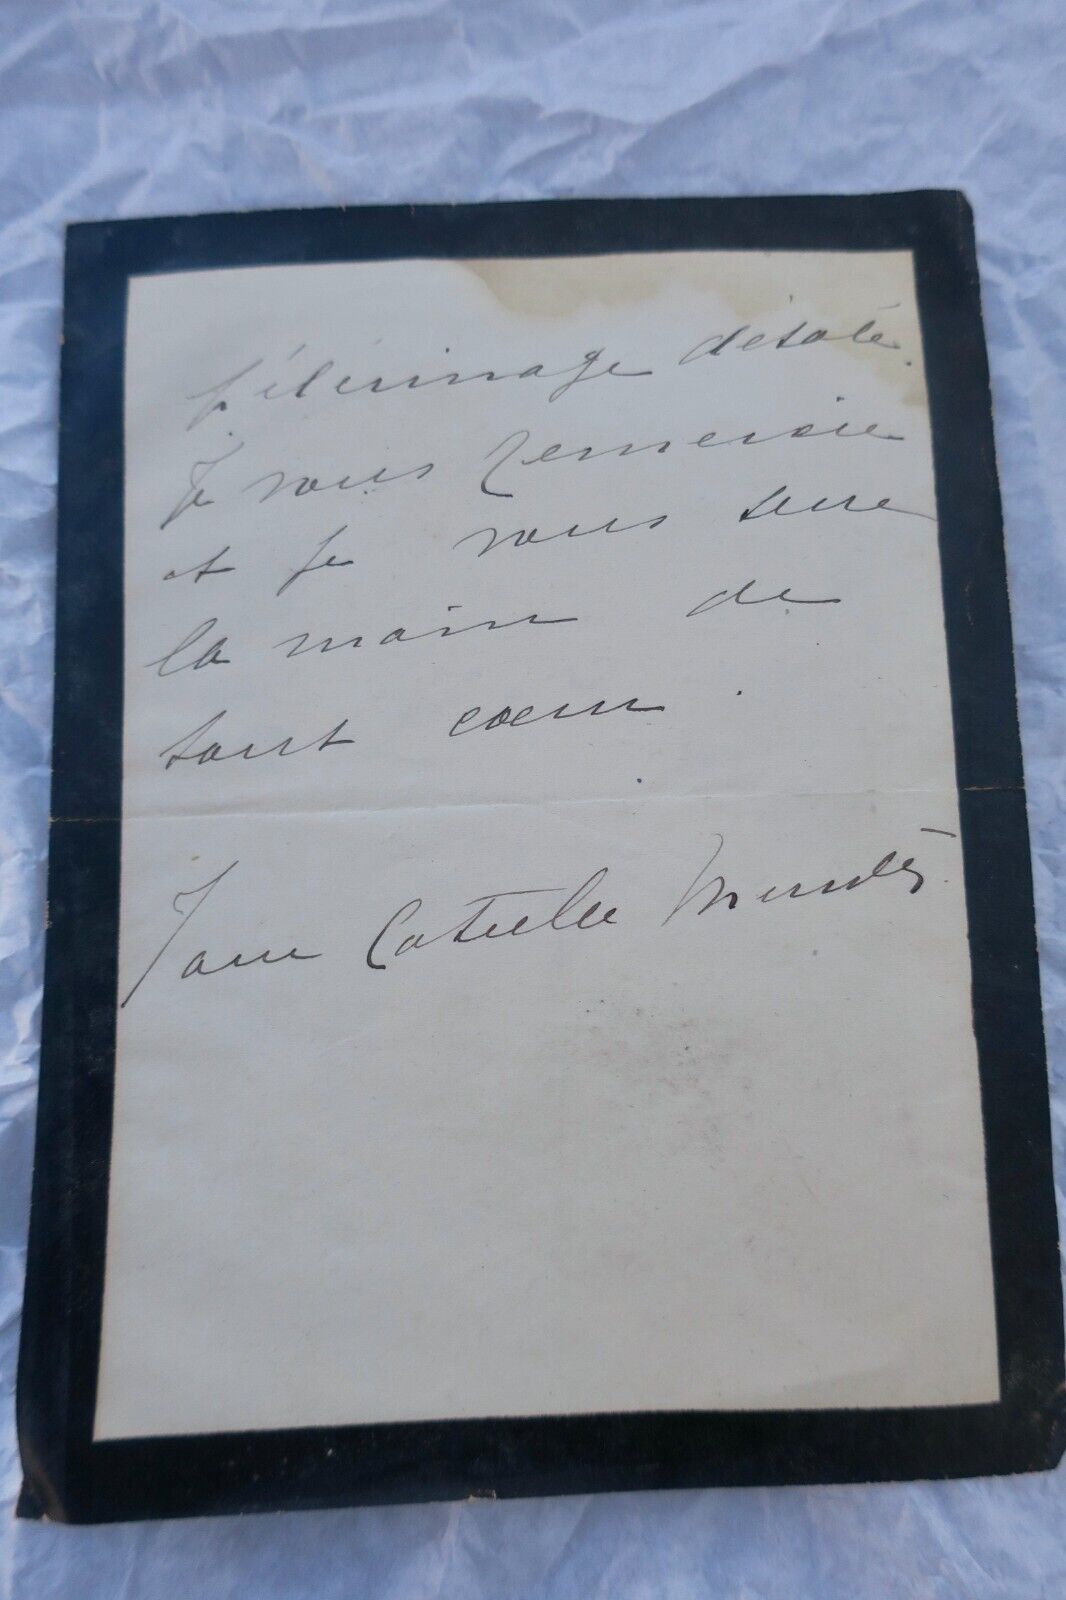 pélérinage désolé.
Je vous remercie
et je vous serre
la main de
tout cœur.
Jane Catulle Mendès